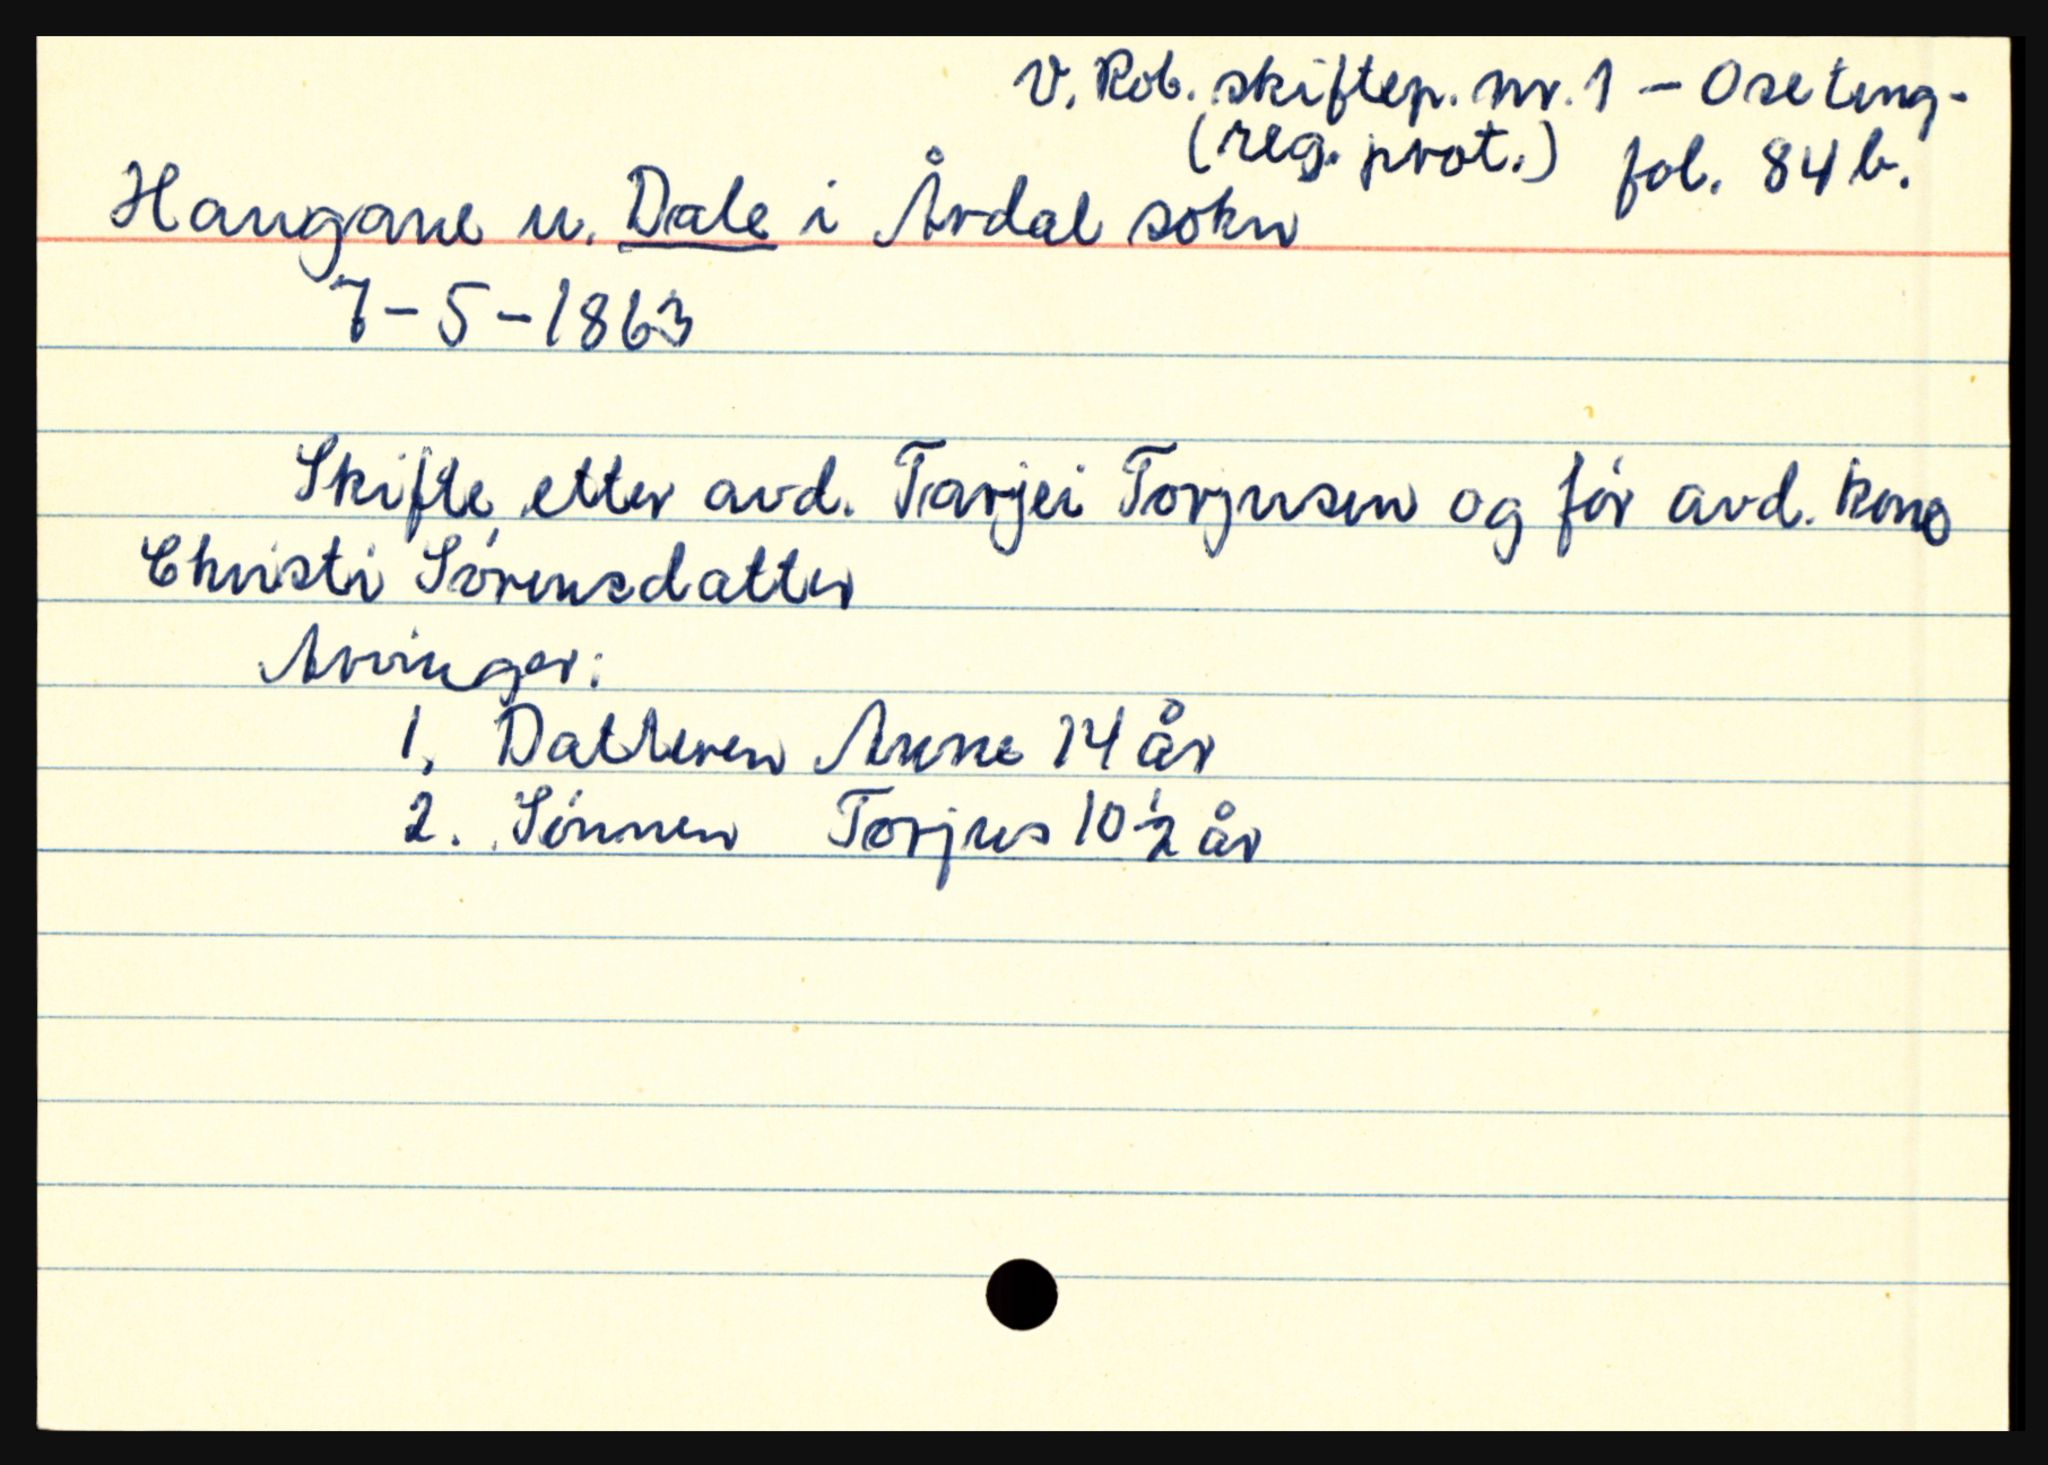 V. Rob. skiftep. nr. 1 – Oseting-
(reg. prot.) fol. 84 b.
Haugane u. Dale i Årdal sokn
7-5-1863
Skifte etter avd. Tarjei Torjusen og før avd. kone
Christi Sørensdatter
Arvinger:
1. Datteren Anne 14 år
2. Sønnen Torjus 10 1/2 år